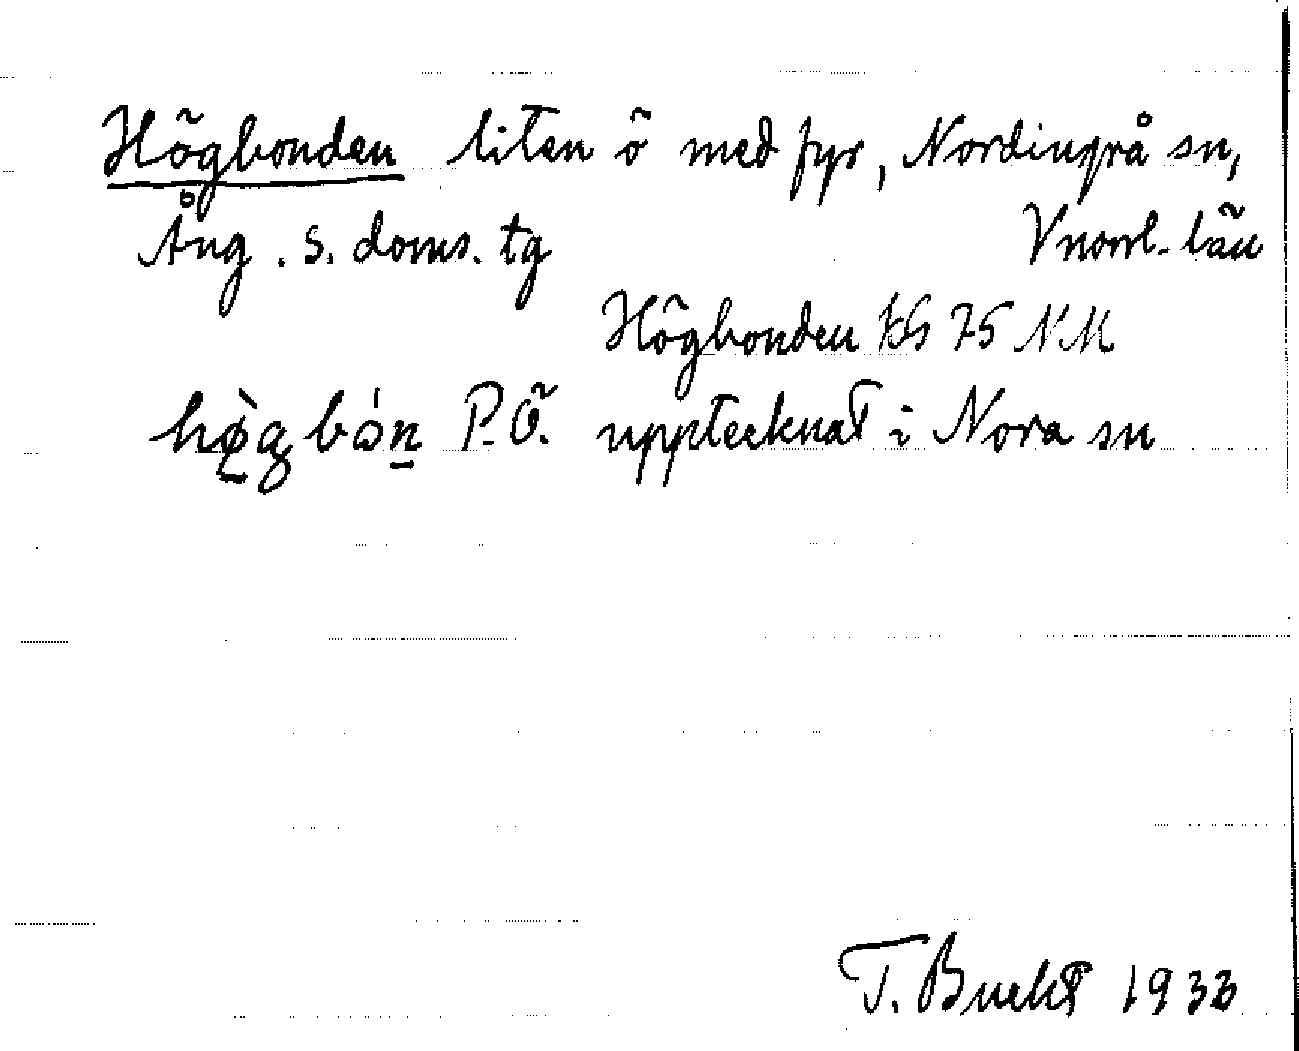 Högbonden liten ö med fyr, Nordingrå sn,
Ång. s. doms. tg Vnorrl. län
Högbonden KG 75 NM
hø̀gbón P.Ö. upptecknat i Nora sn
T. Bucht 1933